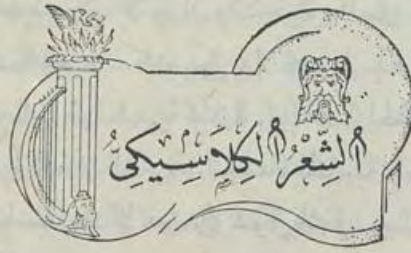 الشِّعْرُ الْكِلَاسِيكِيُّ